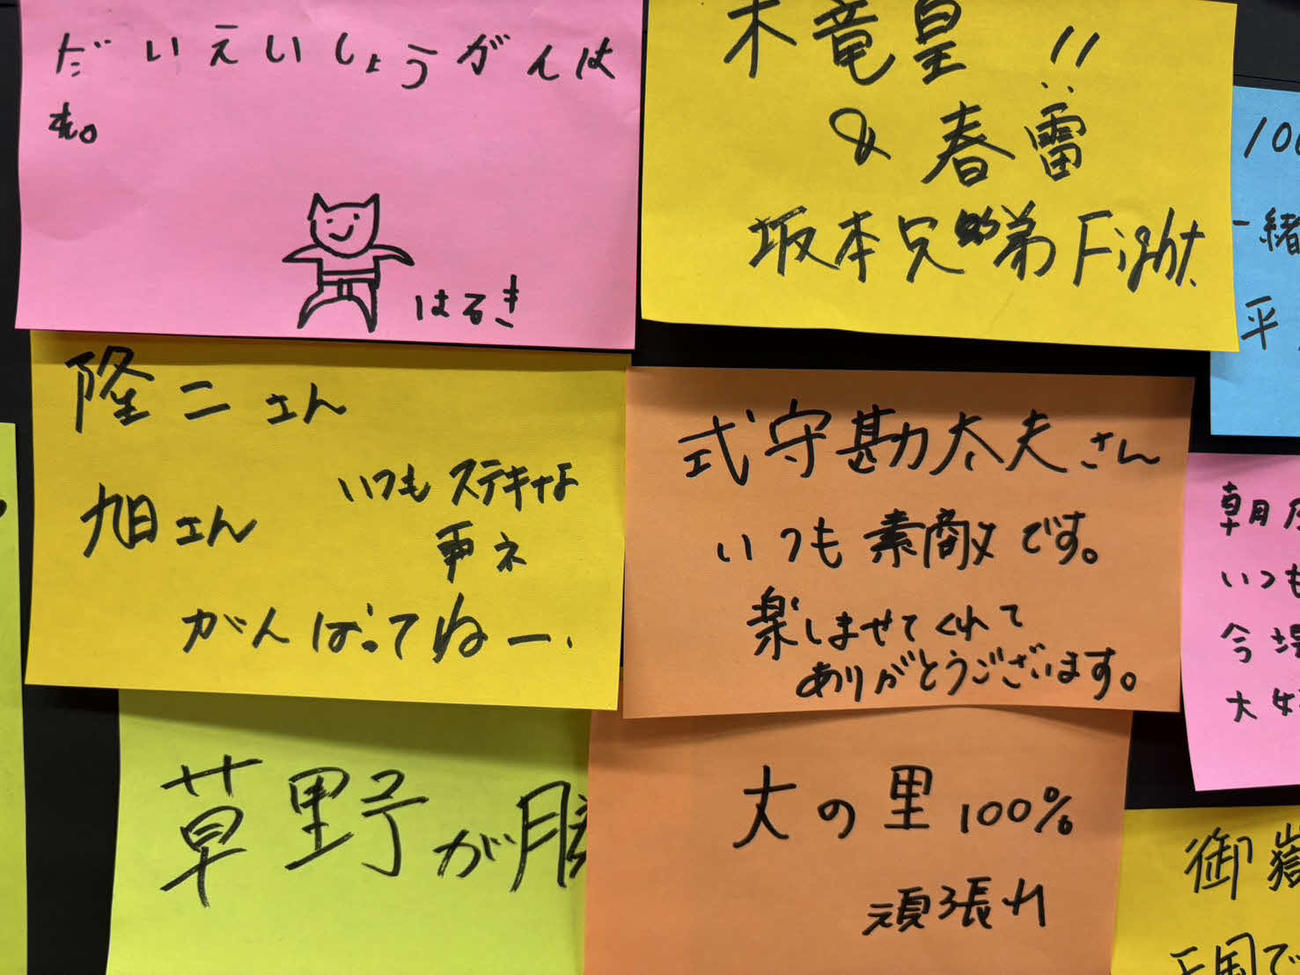 だいえいしょうがんは
れ。
はるき
木竜皇!!
&春雷
坂本兄弟Fight.
100
一緒
平
隆二さん
旭さん
いつもステキな
声ネ
がんばってねー.
式守勘太夫さん
いつも素敵です。
楽しませてくれて
ありがとうございます。
朝乃
いつも
今場
大好
草野が勝
大の里100%
頑張れ
御嶽
三国で